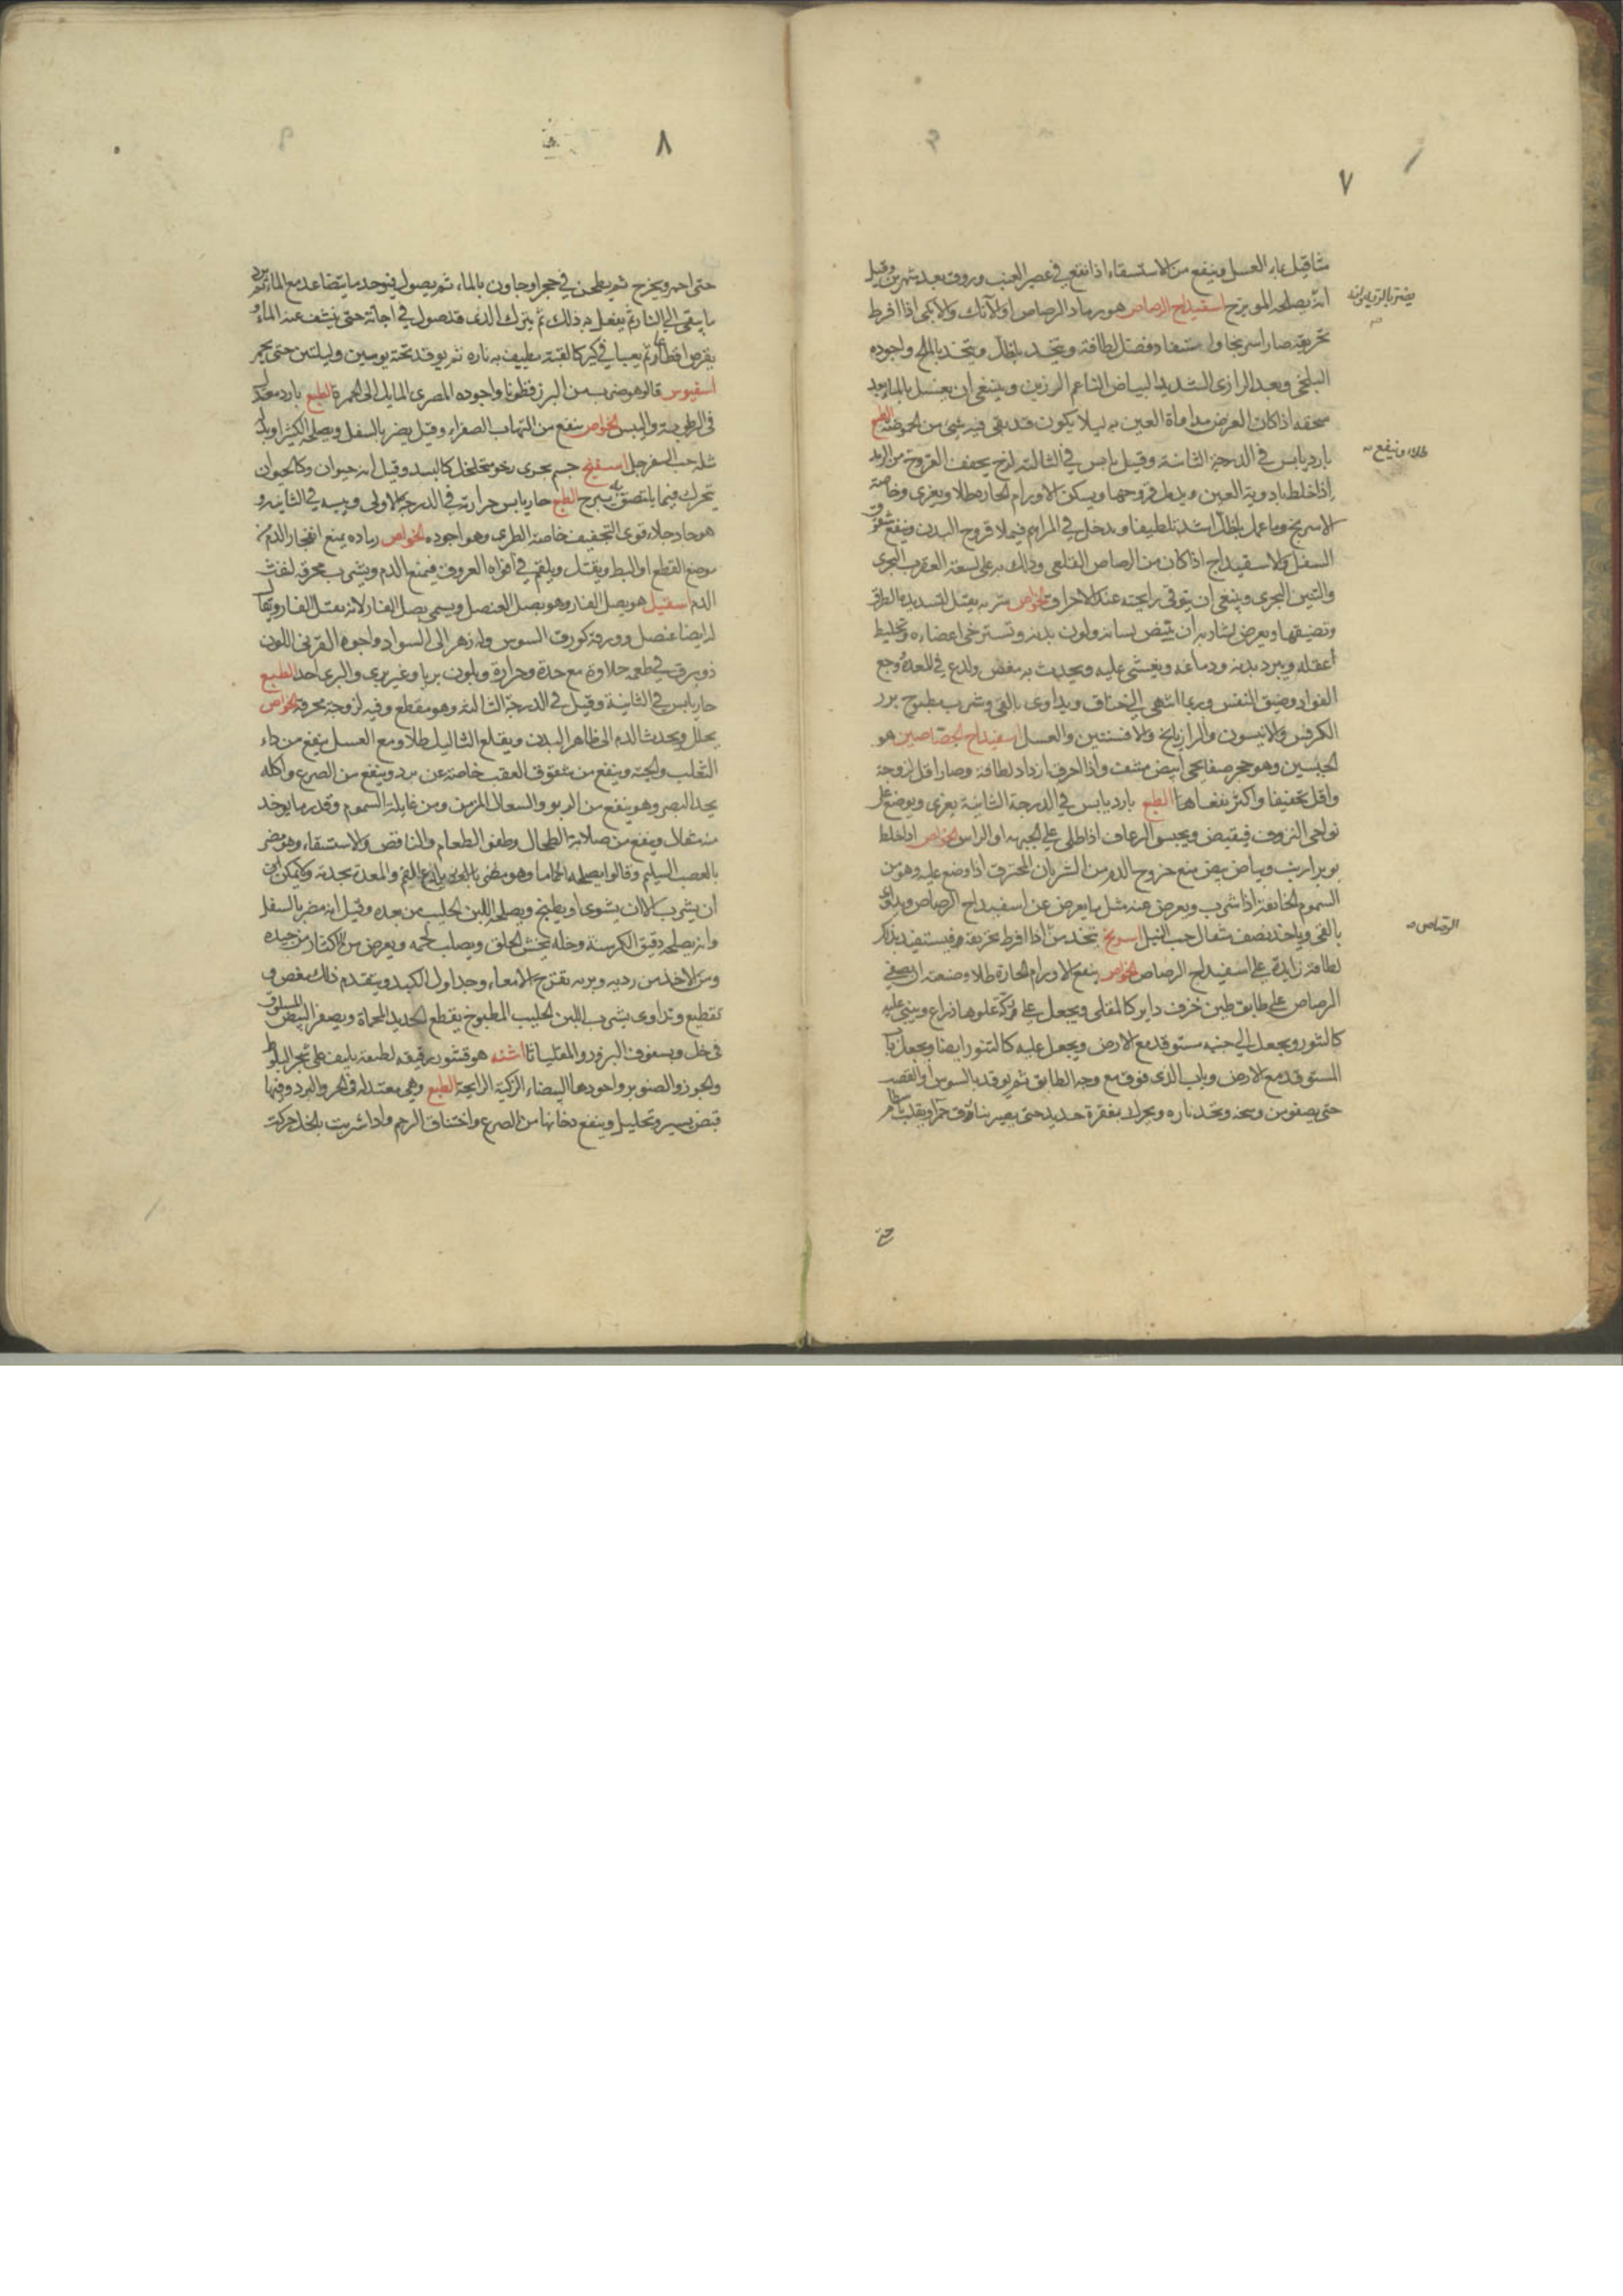 ٧
مثاقيل بماء العسل وينفع من الاستسقاء اذا نقع في عصير العنب وروق بعد شهرين وقيل
انه يصلحه المويزج اسفيداج الرصاص هو رماد الرصاص او الآنك والآنكي اذا افرط
تحريقه صار اسرنجا واستفاد فضل لطافة ويتخذ بالخل ويتخذ بالملح واجوده
البلخي وبعد الرازى الشديد البياض الناعم الرزين وينبغي ان يغسل بالماء بعد
سحقه اذا كان الغرض مداواة العين به ليلا يكون قد بقى فيه شئ من الحموضة الطبع
بارد يابس في الدرجة الثانية وقيل يابس في الثالثة يجفف القروح من الرمد
اذا خلط بادوية العين ويدمل قروحها ويسكن الاورام الحارة طلا ويغرى وخاصة
الاسرنج وما عمل بالخل اشد تلطيفا ويدخل في المراهم فيملا قروح البدن وينفع شقوق
السفل والاسفيداج اذا كان من الرصاص القلعى ودلك به على لسعة العقرب البحرى
والتنين البحرى وينبغى ان يتوقى رايحته عند الاحراق الخواص شربه يقتل لتسديده الطرق
وتضييقها ويعرض لشاربه ان يبيض لسانه ولون بدنه وتسترخى اعضاءه وتخليط
اعقله ويبرد بدنه ودماغه ويغشى عليه ويحدث به مغص ولذع في المعدة وجع
الفواد وضيق النفس وربما انتهى الى خناق ويداوى بالقى وشرب مطبوخ بزر
الكرفس والانيسون والرازيانج والافسنتين والعسل اسفيداج الجصاصين هو
الجبسين وهو حجر صفايحى ابيض مشف واذا احرق ازداد لطافة وصار اقل لزوجة
واقل تجفيفا واكثر نفعا الطبع بارد يابس في الدرجة الثانية يغرى ويوضع على
نواحى النزوف فيقبض ويحبس الرعاف اذا طلى على الجبهة او الراس الخواص اذا خلط
بوبر ارنب وبياض بيض منع خروج الدم من الشريان المخترق اذا وضع عليه وهو من
السموم الخانقة اذا شرب ويعرض عنه مثل ما يعرض عن اسفيداج الرصاص ويداوى
بالقى وياخذ نصف مثقال حب النيل اسرنج يتخذ من اذا افرط تحريقه فيستفيد بذلك
لطافة زايدة على اسفيداج الرصاص الخواص ينفع الاورام الحارة طلا وصنعته ان يصفى
الرصاص على طابق طين خزف داير كالمقلى ويجعل على دكة علوها ذراع ويبنى عليه
كالتنور ويجعل الى جنبه مستوقد مع الارض ويجعل عليه كالتنور ايضا ويجعل باب
المستوقد مع الارض وباب الذى فوق مع وجه الطابق ثم يوقد بالسوس او القصب
حتى يصفو من وسخه وتخمد ناره ويحرك بمغرفة حديد حتى يصير
يضر بالرية وان
طلاء وينفع
الرصاص
حتى
٨
حتى احمر ويخرج ثم يطحن في حجر او جاون بالماء ثم يصول فيوخذ ما يتصاعد مع الماء ثم يرد
ما يبقى الى النار ثم يفعل به ذلك ثم يترك الذى قد تصول في اجانة حتى ينشف عنه الماء
يقرص اقطارا ثم يعبا في كير كالقبة يطيف به ناره ثم يوقد تحته يومين وليلتين حتى يحمر
اسفيوس قالو هو ضرب من البزر قطونا واجوده المصرى المايل الى الحمرة الطبع بارد معتدل
في الرطوبة واليبس الخواص ينفع من التهاب الصفراء وقيل يضر بالسفل ويصلحه الكثيرا وبدله
مثله حب السفرجل اسفنج جسم بحرى رخو متخلخل كاللبد وقيل انه حيوان وكالحيوان
يتحرك فيما يلتصق به يبرح الطبع حار يابس حرارته في الدرجة الاولى ويبسه في الثانية و
هو حاد جلاء قوى التجفيف خاصة الطرى وهو اجوده الخواص رماده يمنع انفجار الدم من
موضع القطع او البط ويفتل ويلقم في افواه العروق فيمنع الدم ويشرب محرقه لنفث
الدم اسقيل هو بصل الفار وهو بصل العنصل ويسمى بصل الفار لانه يقتل الفار ويقال
له ايضا عنصل وورقه كورق السوس وله زهر الى السواد واجوده القرنى اللون
ذو بريق في طعمه حلاوة مع حدة وحرارة ويكون بريا وغير برى والبرى احد الطبع
حار يابس في الثانية وقيل في الدرجة الثالثة وهو مقطع وفيه لزوجة محرقة الخواص
يحلل ويحدث الدم الى ظاهر البدن ويقلع الثاليل طلا ومع العسل ينفع من داء
الثعلب والحية وينفع من شقوق العقب خاصة عن برد وينفع من الصرع واكله
يحد البصر وهو ينفع من الربو والسعال المزمن ومن غايلة السموم وقدر ما يوخذ
منه مثقال وينفع من صلابة الطحال وطفو الطعام والنافض والاستسقاء وهو مضر
بالعصب السليم وقالوا يصلحه الحماما وهو مضر والمعدة بحدته
ان يشرب الا ان يشوى او يطبخ ويصلحه اللبن الحليب من بعده وقيل انه مضر بالسفل
وانه يصلحه دقيق الكرسنة وخله يخشن الحلق ويصلب لحمه ويعرض من الاكثار من جيده
ومن الاخذ من رديه وبريه تقرح الامعاء وجداول الكبد ويتقدم ذلك مغص و
تقطيع وتداوى بشرب اللبن الحليب المطبوخ بقطع الحديد المحماة وبصفر البيض المسلوق
في خل وبسفوف البزور والمقلياثا اشنه هو قشور رقيقه لطيفه يلتف على شجر البلوط
والجوز والصنوبر واجودها البيضاء الزكية الرايحة الطبع وهى معتدله في الحر والبرد وفيها
قبض يسير وتحليل وينفع دخانها من الصرع واختناق الرحم واذا شربت بالخل حركت